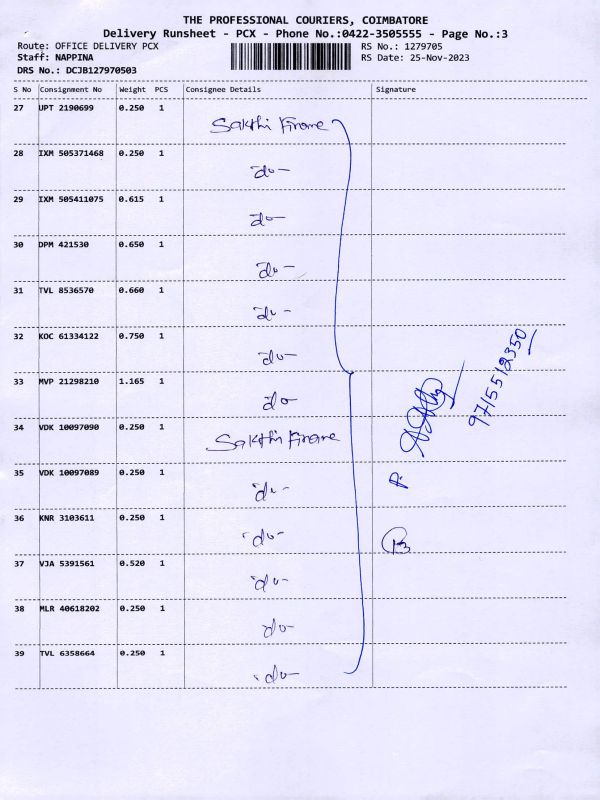 THE PROFESSIONAL COURIERS, COIMBATORE
Delivery Runsheet - PCX - Phone No.:0422-3505555 - Page No.:3
Route: OFFICE DELIVERY PCX RS No.: 1279705
Staff: NAPPINA RS Date: 25-Nov-2023
DRS No.: DCJB127970503
S No Consignment No Weight PCS Consignee Details Signature
27 UPT 2190699 0.250 1
Sakthi Finance
28 IXM 505371468 0.250 1
do -
29 IXM 505411075 0.615 1
do -
30 DPM 421530 0.650 1
do -
31 TVL 8536570 0.660 1
do -
32 KOC 61334122 0.750 1
do -
33 MVP 21298210 1.165 1
do
34 VDK 10097090 0.250 1
Sakthi Finance
9715512350
35 VDK 10097089 0.250 1
do -
36 KNR 3103611 0.250 1
do -
13
37 VJA 5391561 0.520 1
do -
38 MLR 40618202 0.250 1
do -
39 TVL 6358664 0.250 1
do -